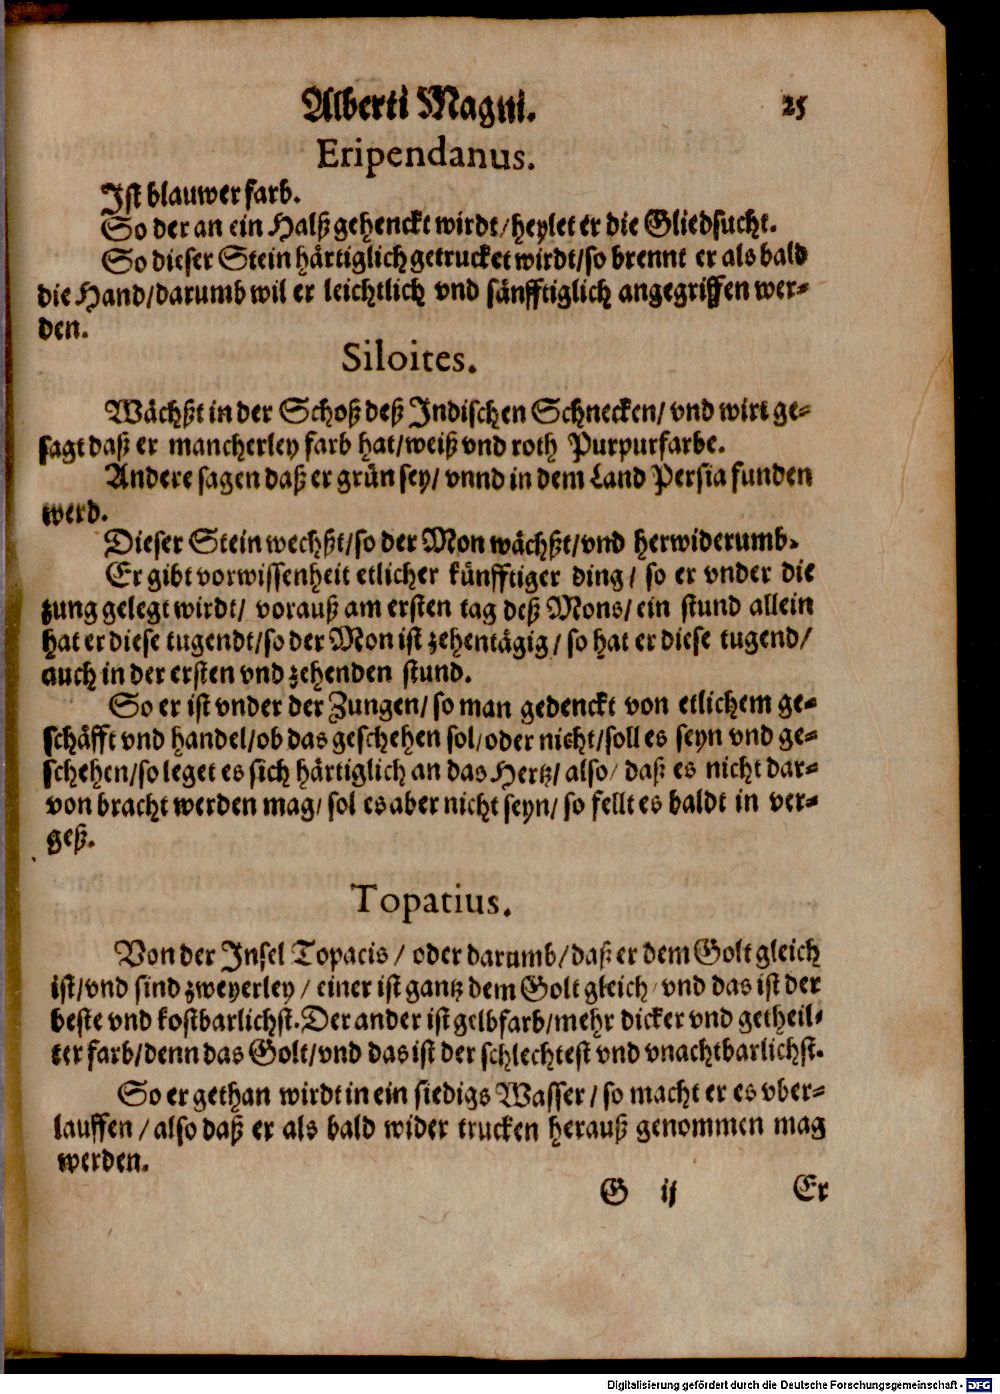 Alberti Magni. 25
Eripendanus.
Ist blauwer farb.
So der an ein Halß gehenckt wirdt/heylet er die Gliedsucht.
So dieser Stein härtiglich getrucket wirdt/so brennt er als bald
die Hand/darumb wil er leichtlich vnd sänfftiglich angegriffen wer-
den.
Siloites.
Wächßt in der Schoß deß Indischen Schnecken/ vnd wirt ge-
sagt daß er mancherley farb hat/weiß vnd roth Purpurfarbe.
Andere sagen daß er grün sey/ vnnd in dem Land Persia funden
werd.
Dieser Stein wechßt/so der Mon wächßt/vnd herwiderumb.
Er gibt vorwissenheit etlicher künfftiger ding/ so er vnder die
zung gelegt wirdt/ vorauß am ersten tag deß Mons/ein stund allein
hat er diese tugendt/so der Mon ist zehentägig/so hat er diese tugend/
auch in der ersten vnd zehenden stund.
So er ist vnder der Zungen/so man gedenckt von etlichem ge-
schäfft vnd handel/ob das geschehen sol/oder nicht/soll es seyn vnd ge-
schehen/so leget es sich härtiglich an das Hertz/also/ daß es nicht dar-
von bracht werden mag/ sol es aber nicht seyn/ so fellt es baldt in ver-
geß.
Topatius.
Von der Insel Topacis / oder darumb/daß er dem Golt gleich
ist/vnd sind zweyerley / einer ist gantz dem Golt gleich/vnd das ist der
beste vnd kostbarlichst. Der ander ist gelbfarb/mehr dicker vnd getheil-
ter farb/denn das Golt/vnd das ist der schlechtest vnd vnachtbarlichst.
So er gethan wirdt in ein siedigs Wasser / so macht er es vber-
lauffen / also daß er als bald wider trucken herauß genommen mag
werden.
G ij Er
Digitalisierung gefördert durch die Deutsche Forschungsgemeinschaft - DFG